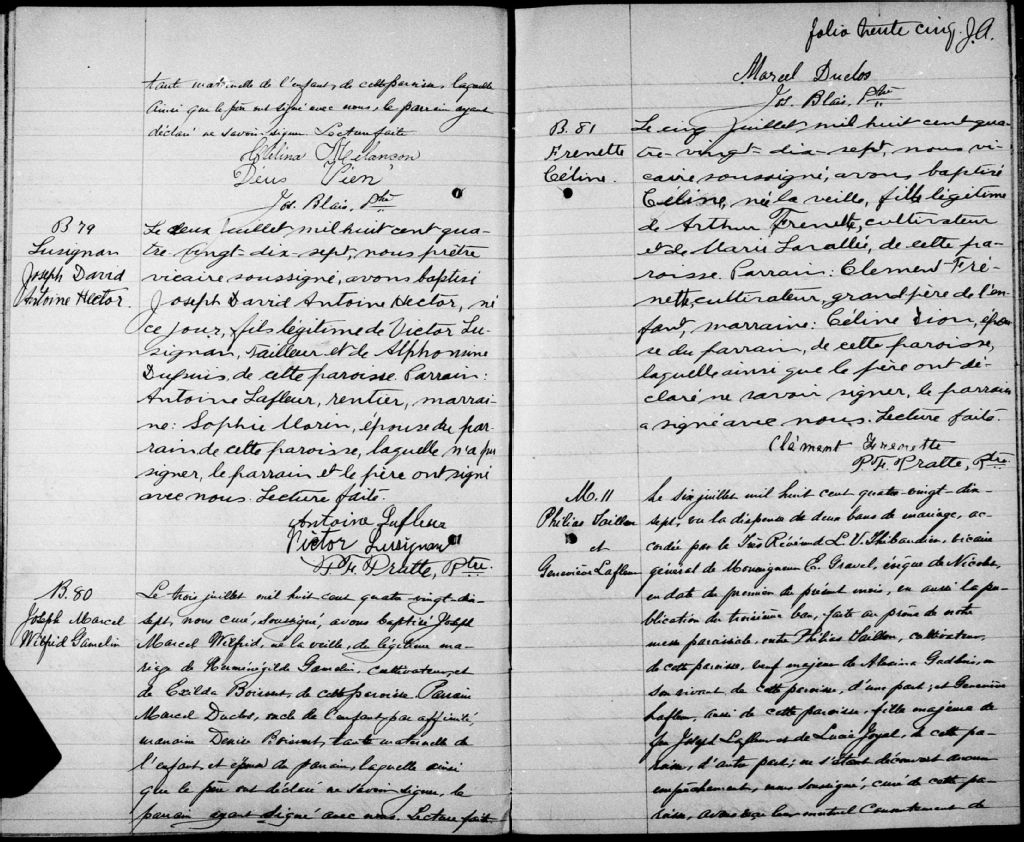 tante maternelle de l'enfant, de cette paroisse, laquelle
ainsi que le père ont signé avec nous, le parrain ayant
déclaré ne savoir signer. Lecture faite
Mélina Melancon
Déus Vien
Jos. Blais, Ptre
B 79
Lusignan
Joseph David
Antoine Hector.
Le deux juillet mil huit cent qua-
tre-vingt-dix-sept, nous prêtre
vicaire soussigné, avons baptisé
Joseph David Antoine Hector, né
ce jour, fils légitime de Victor Lu-
signan, tailleur et de Alphonsine
Dupuis, de cette paroisse. Parrain:
Antoine Lafleur, rentier, marrai-
ne: Sophie Morin, épouse du par-
rain de cette paroisse, laquelle n'a pu
signer, le parrain et le père ont signé
avec nous. Lecture faite.
Antoine Lafleur
Victor Lusignan
P. H. Pratte, Ptre.
B. 80
Joseph Marcel
Wilfrid Gamelin
Le trois juillet mil huit cent quatre-vingt-dix-
sept, nous curé, soussigné, avons baptisé Joseph
Marcel Wilfrid, né la veille, du légitime ma-
riage de Herménégilde Gamelin, cultivateur, et
de Exilda Boisvert, de cette paroisse. Parrain
Marcel Duclos, oncle de l'enfant par affinité,
marraine Boisvert, tante maternelle de
l'enfant, et épouse du parrain, laquelle ainsi
que le père ont déclaré ne savoir signer, le
parrain ayant signé avec nous. Lecture faite
folio trente cinq. J.A.
Marcel Duclos
Jos. Blais, Ptre
B. 81
Frenette
Céline.
Le cinq juillet mil huit cent qua-
tre-vingt-dix-sept, nous vi-
caire soussigné, avons baptisé
Céline, née la veille, fille légitime
de Arthur Frenette, cultivateur
et de Marie Lavallée, de cette pa-
roisse. Parrain: Clement Fré-
nette, cultivateur, grand père de l'en-
fant, marraine: Céline Dion, épou-
se du parrain, de cette paroisse,
laquelle ainsi que le père ont dé-
claré ne savoir signer, le parrain
a signé avec nous. Lecture faite.
Clément Frenette
P. H. Pratte, Ptre.
M. 11
Philias
et
Geneviève Lafleur
Le six juillet mil huit cent quatre-vingt-dix-
sept, vu la dispense de deux bans de mariage, ac-
cordée par le Très Révérend L. V. Thibaudier, vicaire
général de Monseigneur E. Gravel, évêque de Nicolet,
en date du premier du présent mois, vu aussi la pu-
blication du troisième ban, faite au prône de notre
messe paroissiale, entre Philias cultivateur,
de cette paroisse, veuf majeur de en
son vivant de cette paroisse, d'une part; et Geneviève
Lafleur, aussi de cette paroisse, fille majeure de
feu Joseph Lafleur et de Lucie Joyal, de cette pa-
roisse, d'autre part; ne s'étant découvert aucun
empêchement, nous soussigné, curé de cette pa-
roisse, avons reçu leur mutuel consentement de